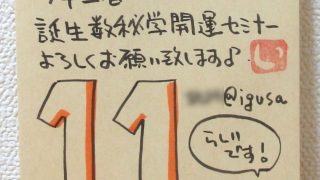 誕生数秘学開運セミナー
よろしくお願い致します♪
@igusa
11
らしい
です!